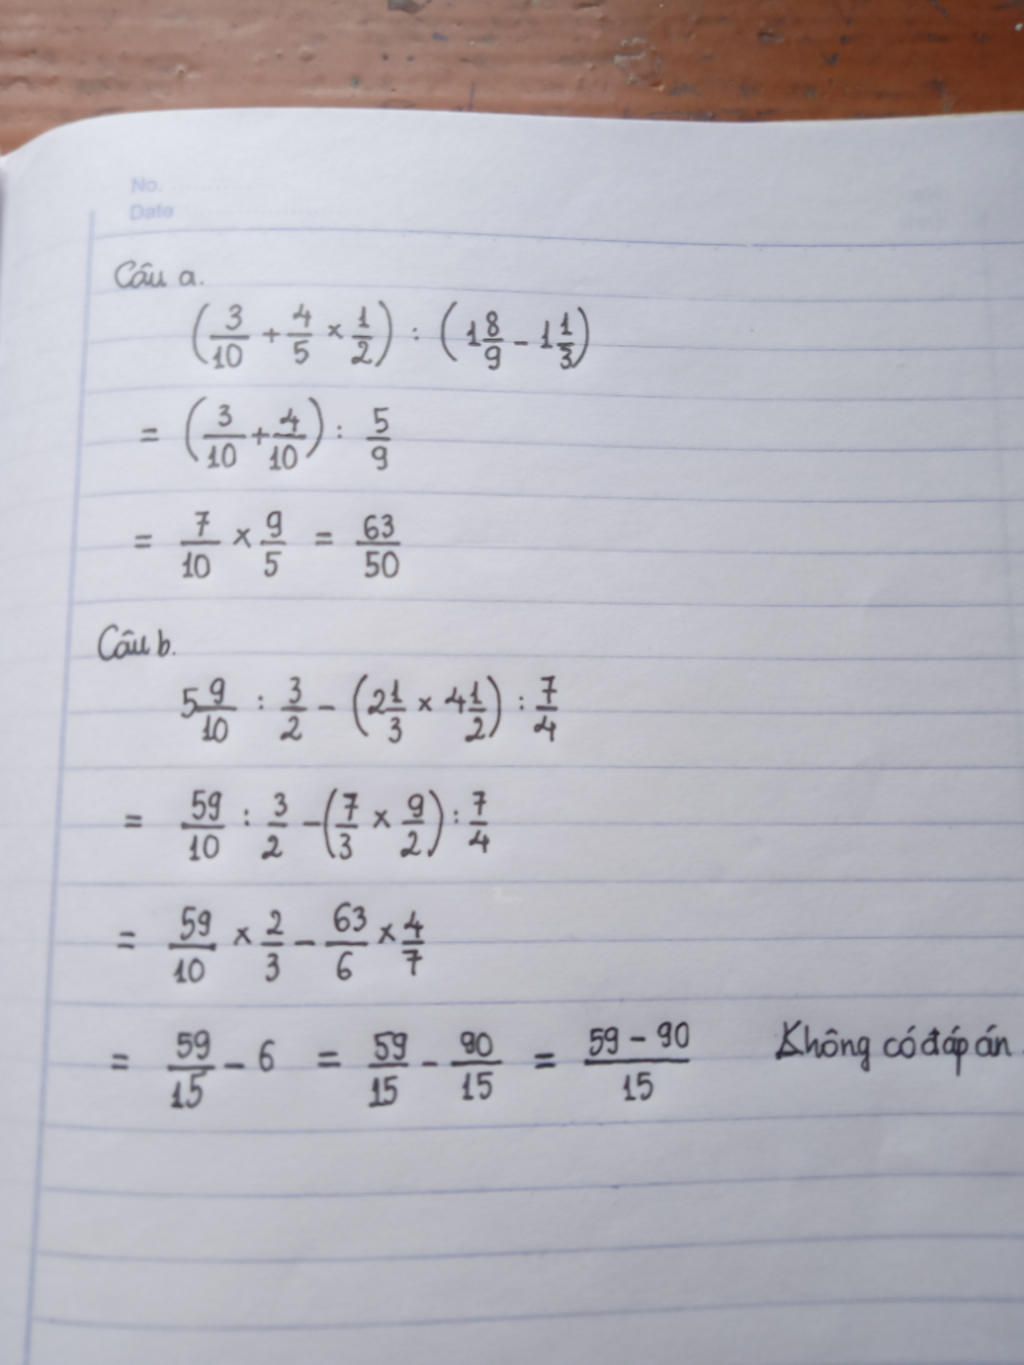 No.
Date
Câu a.
(3/10 + 4/5 × 1/2) : (1 8/9 - 1 1/3)
= (3/10 + 4/10) : 5/9
= 7/10 × 9/5 = 63/50
Câu b.
5 9/10 : 3/2 - (2 1/3 × 4 1/2) : 7/4
= 59/10 : 3/2 - (7/3 × 9/2) : 7/4
= 59/10 × 2/3 - 63/6 × 4/7
= 59/15 - 6 = 59/15 - 90/15 = (59 - 90)/15 Không có đáp án.